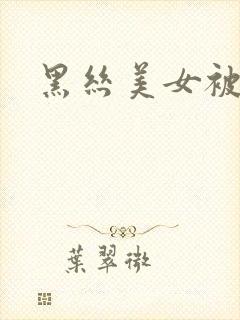 黑丝美女被
葉翠微